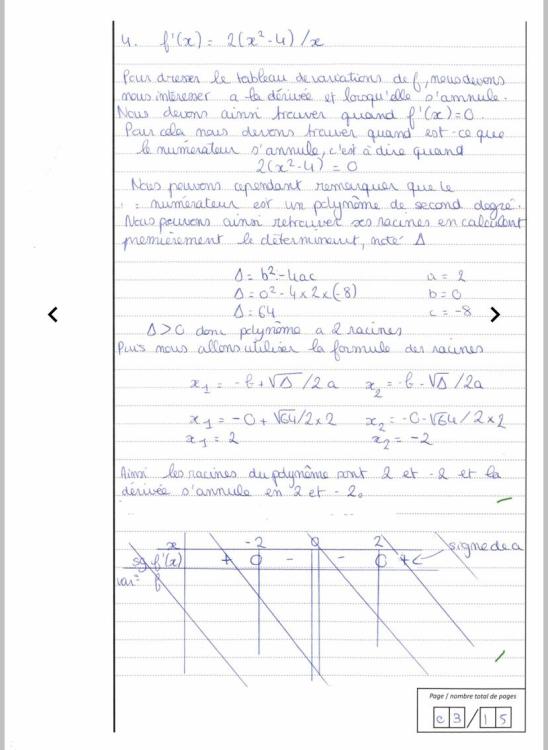 4. f'(x) = 2(x²-4)/x
Pour dresser le tableau de variations de f, nous devons
nous intéresser a la dérivée et lorsqu'elle s'annule.
Nous devons ainsi trouver quand f'(x)=0.
Pour cela nous devons trouver quand est-ce que
le numérateur s'annule, c'est à dire quand
2(x²-4) = 0
Nous pouvons cependant remarquer que le
numérateur est un polynôme de second degré.
Nous pouvons ainsi retrouver ses racines en calculant
premièrement le déterminant, noté Δ
Δ = b²-4ac a = 2
Δ = 0²-4×2×(-8) b = 0
Δ = 64 c = -8
Δ>0 donc polynôme a 2 racines
Puis nous allons utiliser la formule des racines
x₁ = -b+√Δ/2a x₂ = -b-√Δ/2a
x₁ = -0+√64/2×2 x₂ = -0-√64/2×2
x₁ = 2 x₂ = -2
Ainsi les racines du polynôme sont 2 et -2 et la
dérivée s'annule en 2 et -2.
x -2 0 2 signe de a
sg f'(x) + 0 - - 0 +
var° f
Page / nombre total de pages
c 3 / 1 5